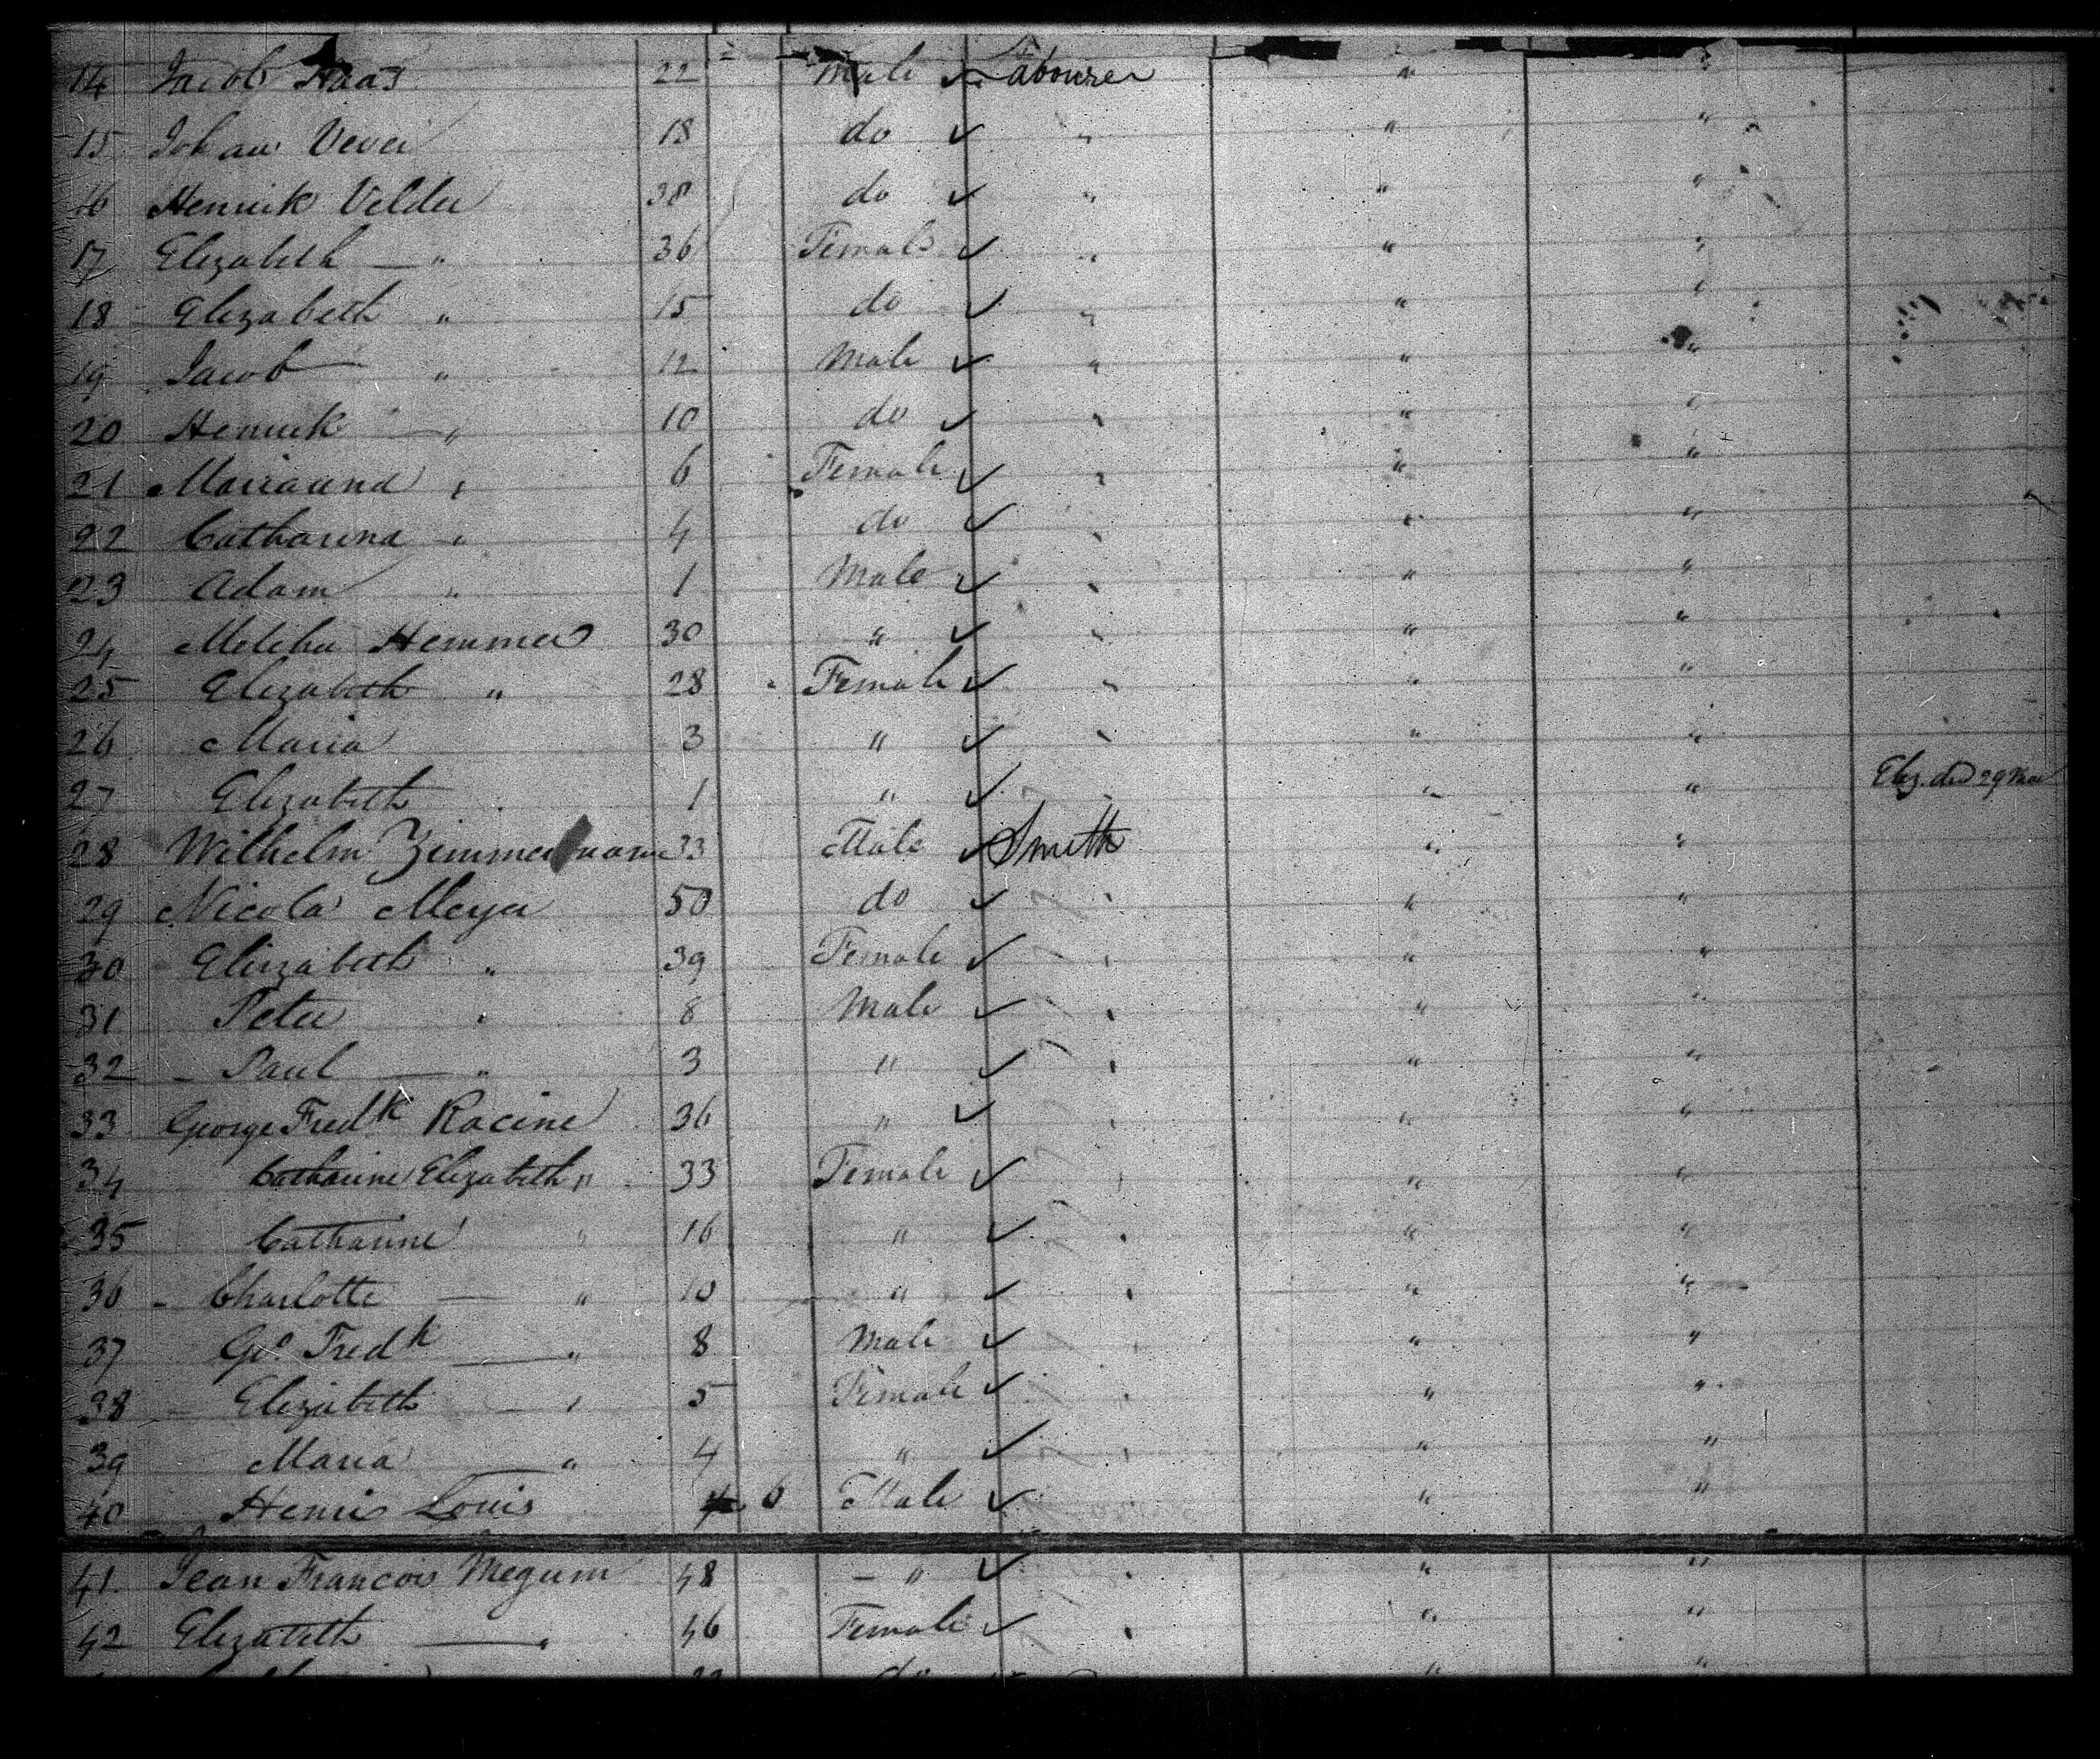 14 Jacob Haas 22 Male ✓ Labourer " "
15 Johan Vever 18 do ✓ " " "
16 Henrick Velder 38 do ✓ " " "
17 Elizabeth — " 36 Female ✓ " " "
18 Elizabeth " 15 do ✓ " " "
19 Jacob " 12 Male ✓ " " "
20 Henrick — " 10 do ✓ " " "
21 Marianna " 6 Female ✓ " " "
22 Catharina " 4 do ✓ " " "
23 Adam " 1 Male ✓ " " "
24 Hemmer 30 " ✓ " " "
25 Elizabeth " 28 Female ✓ " " "
26 Maria 3 " ✓ " " "
27 Elizabeth 1 " ✓ " " Eliz. died 29
28 Wilhelm Zimmermann 33 Male ✓ Smith " "
29 Nicola Meyer 50 do ✓ " " "
30 Elizabeth " 39 Female ✓ " " "
31 Peter " 8 Male ✓ " " "
32 - Paul — " 3 " ✓ " " "
33 George Fredk Racine 36 " ✓ " " "
34 Catharine Elizabeth " 33 Female ✓ " " "
35 Catharine " 16 " ✓ " " "
36 - Charlotte — " 10 " ✓ " " "
37 Go. Fredk — " 8 Male ✓ " "
38 - Elizabeth — " 5 Female ✓ " " "
39 Maria — " 4 " ✓ " " "
40 Henri Louis 6 Male ✓ " "
41 Jean Francois Megum 48 - " ✓ " " "
42 Elizabeth — " 46 Female ✓ " " "